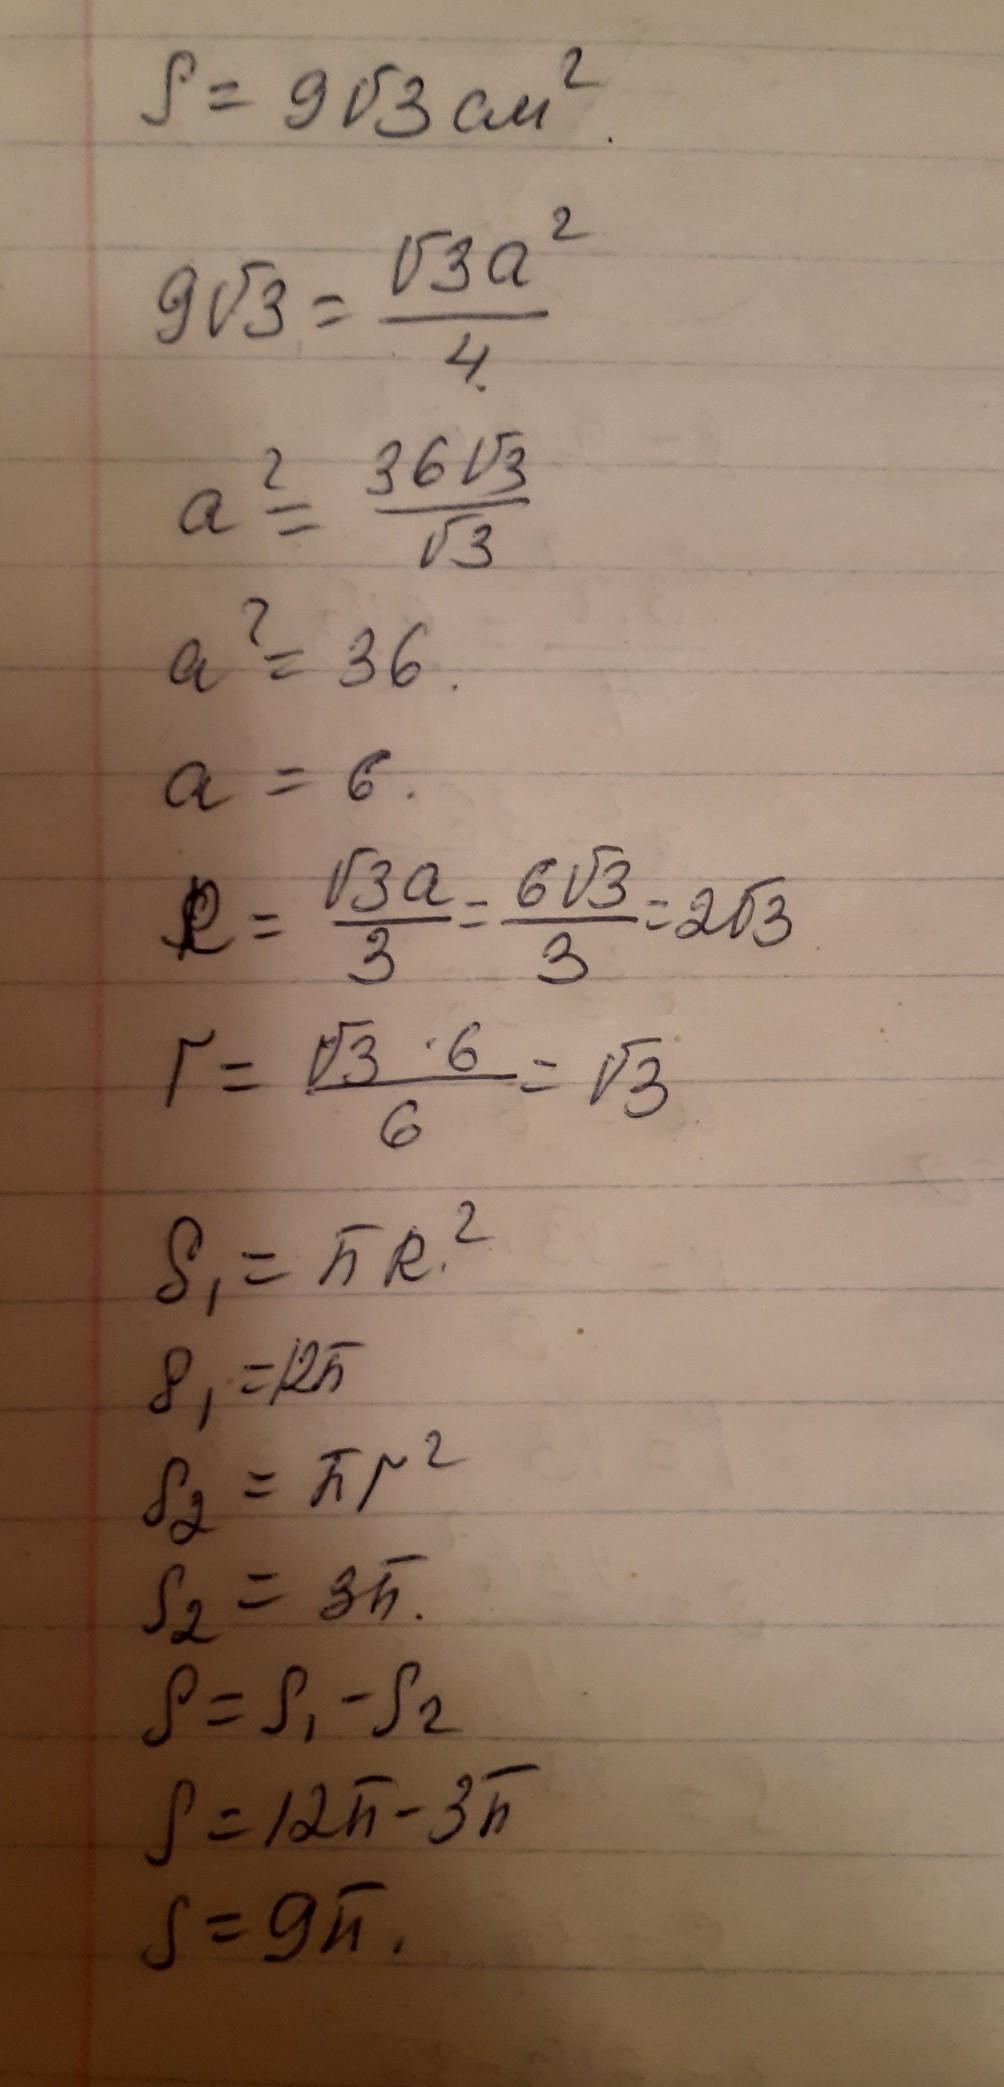 S = 9√3 см².
9√3 = √3a²/4
a² = 36√3/√3
a² = 36.
a = 6.
R = √3a/3 = 6√3/3 = 2√3
r = √3 · 6/6 = √3
S₁ = πR.²
S₁ = 12π
S₂ = πr²
S₂ = 3π.
S = S₁ - S₂
S = 12π - 3π
S = 9π.